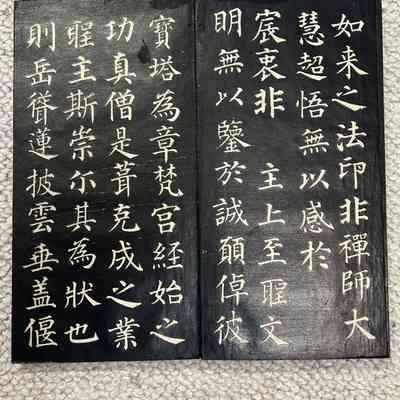 如来之法印非禪師大
慧超悟無以感於
宸衷非 主上至聖文
明無以鑒於誠願倬彼
寶塔為章梵宫經始之
功真僧是葺克成之業
聖主斯崇尒其為狀也
則岳聳蓮披雲垂盖偃